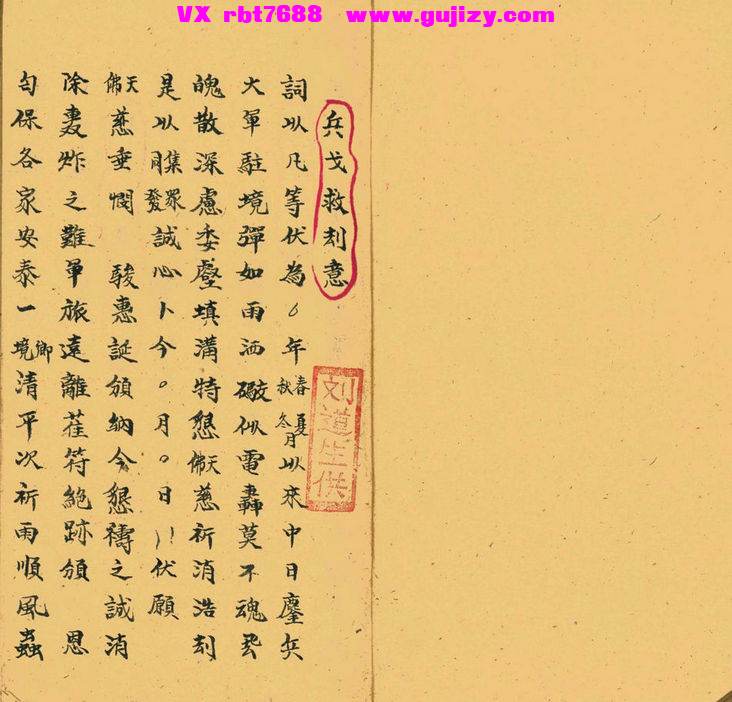 VX rbt7688 www.gujizy.com
兵戈救刼意
刘道生供
詞以凡等伏為○年春夏秋冬月以來中日鏖兵
大軍駐境彈如雨洒礮似電轟莫不魂飛
魄散深慮委壑填溝特懇天佛慈祈消浩刼
是以集眾同發誠心卜今○月○日伏願
天佛慈垂憫 駿惠誕頒納今懇禱之誠消
除轟炸之難軍旅遠離萑苻絶跡頒 恩
匄保各家安泰一鄉境清平次祈雨順風蟲